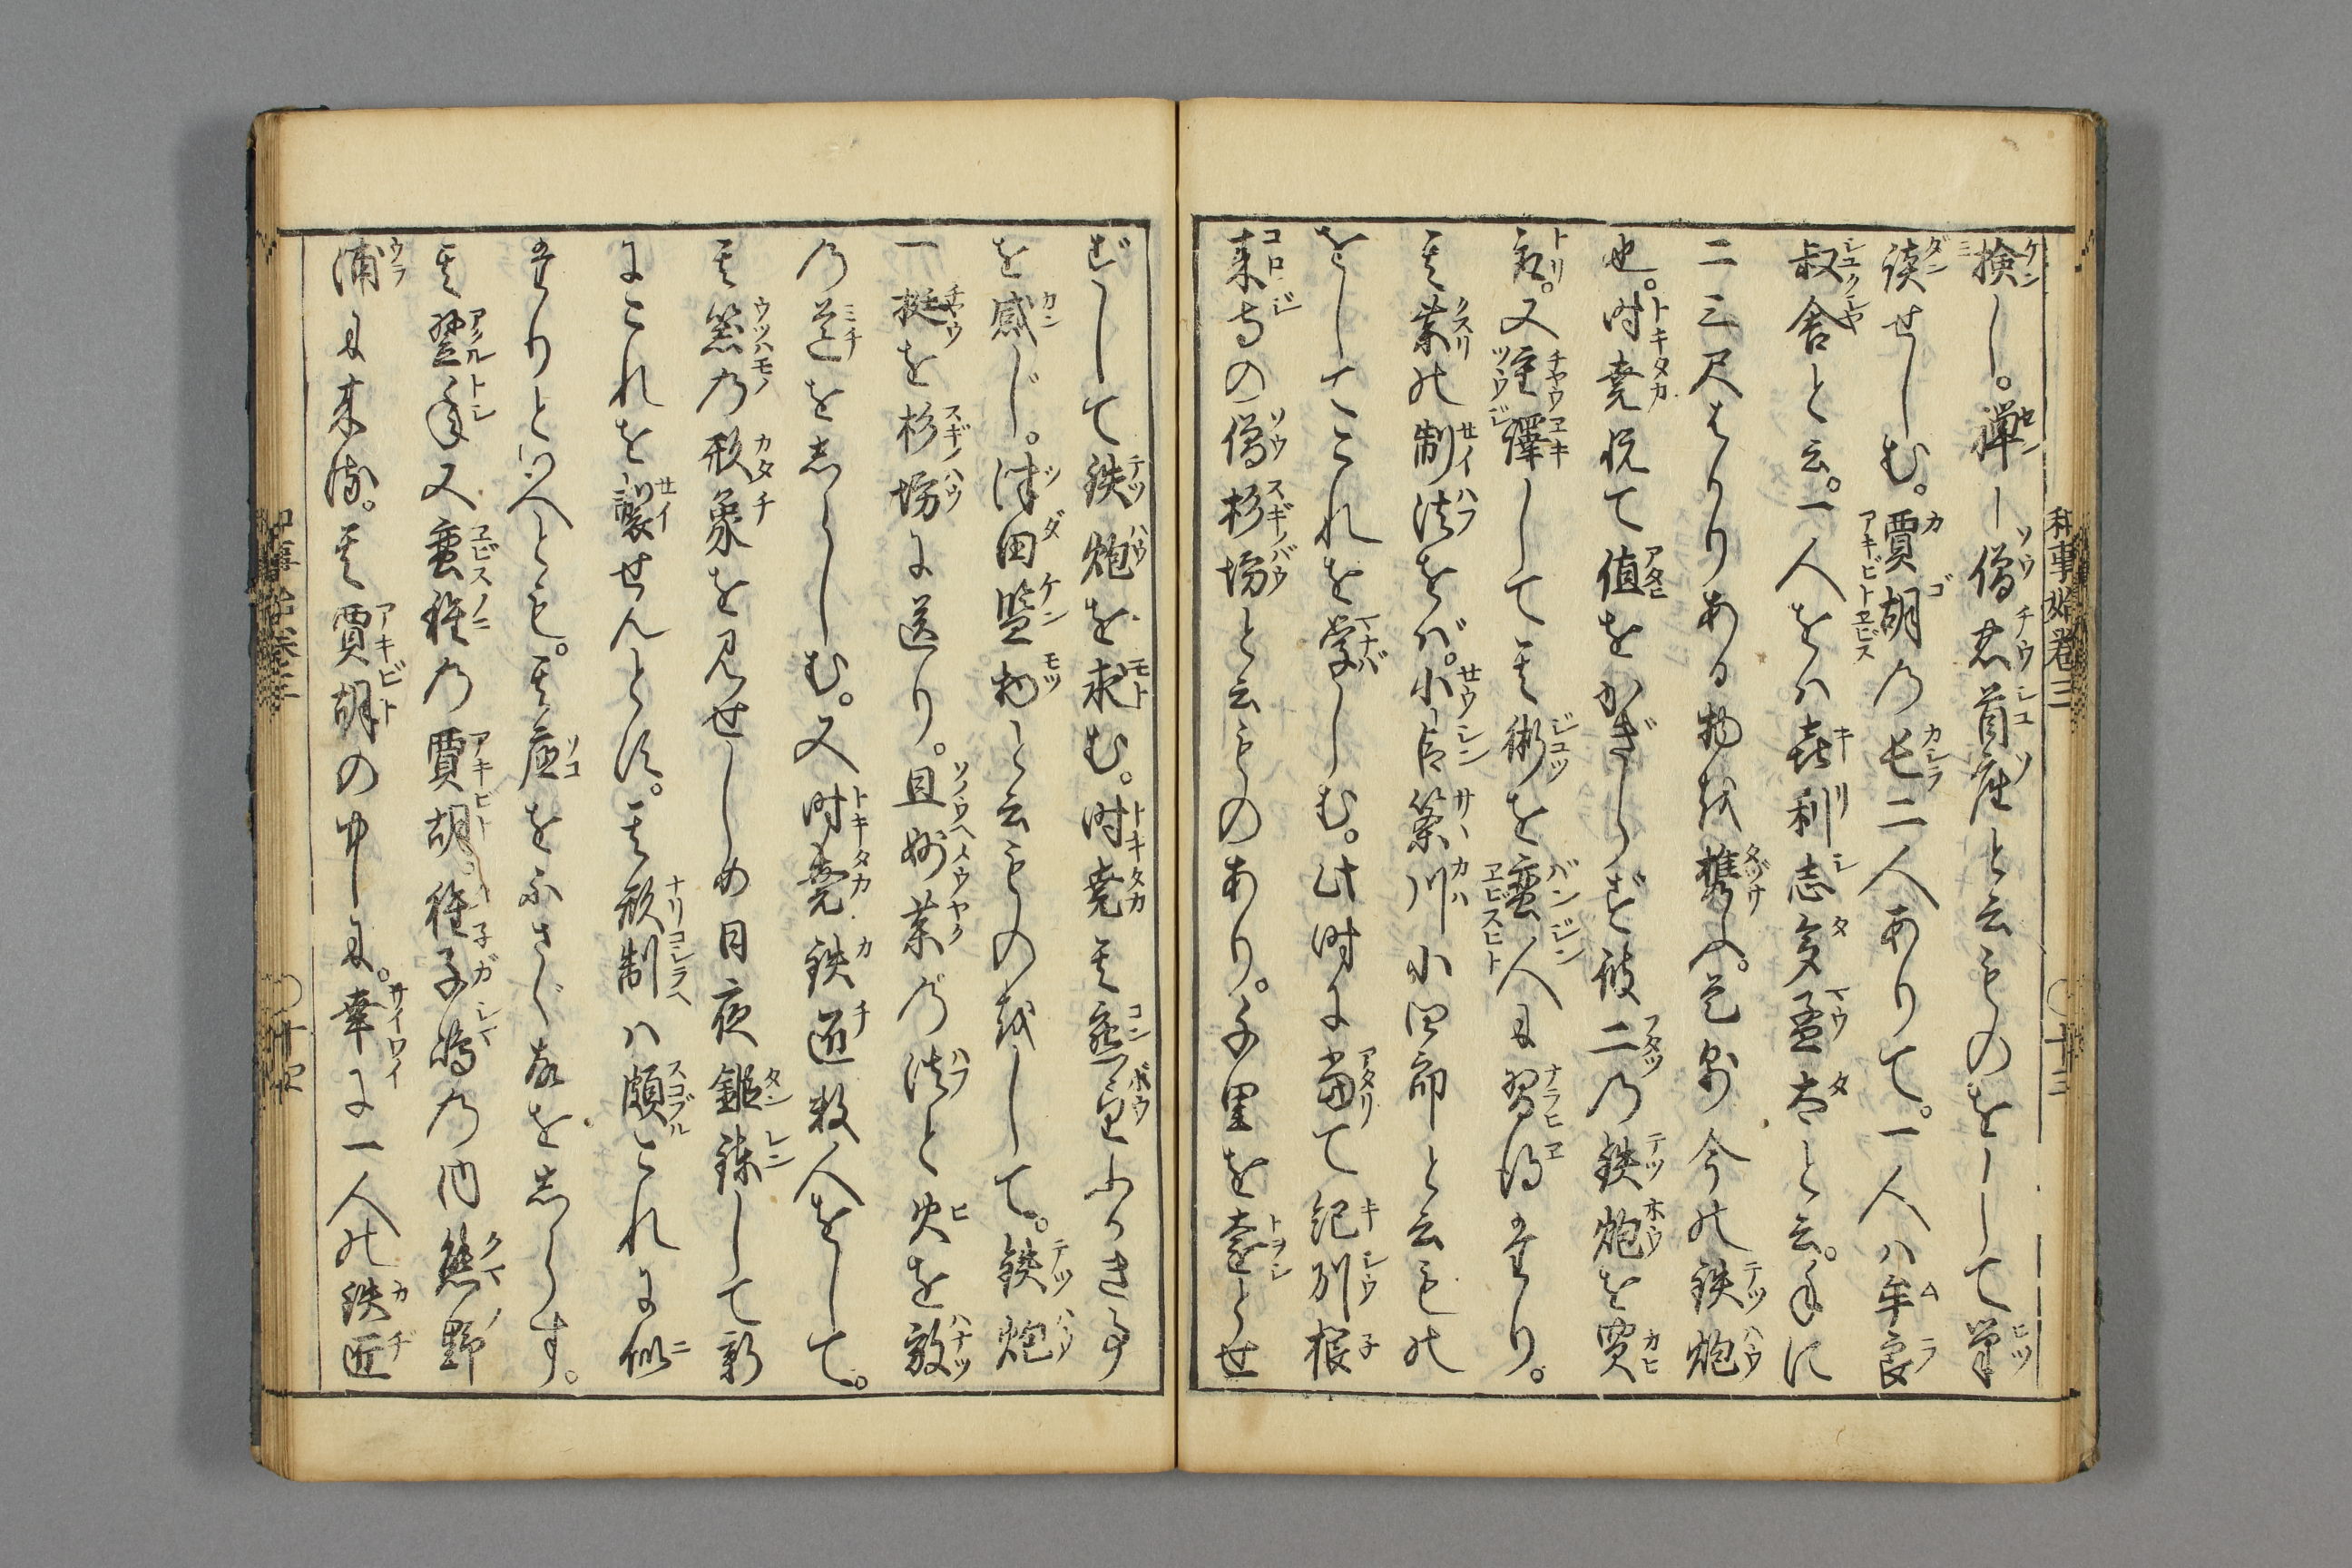 和事始巻三
〇十三
検し。禅僧忠首座と云ものをして筆
談せしむ。賈胡の長二人ありて。一人ハ牟良
叔舎と云。一人をハ喜利志多孟太と云。手に
二三尺ばかりある物を携ふ。是則今の鉄炮
也。時尭悦て値をかぎらず彼二の鉄炮を買
取。又重譯して其術を蛮人に習得たり。
其薬の制法をバ。小臣篠川小四郎と云もの
をしてこれを学しむ。此時に當て紀列根
来寺の僧杉坊と云ものあり。千里を遠とせ
ずして鉄炮を求む。時尭其懇望ふかき事
を感じ。津田監物と云ものをして。鉄炮
一挺を杉坊に送り。且妙薬の法と火を放
の道をしらしむ。又時尭鉄匠数人をして。
其器の形象を見せしめ日夜鍛錬して新
にこれを製せんとす。其形制ハ頗これに似
たりといへとも。其底をふさぐ事をしらす。
其翌年又蛮種の賈胡。種子嶋の内熊野
浦に来る。其賈胡の中に。幸に一人の鉄匠